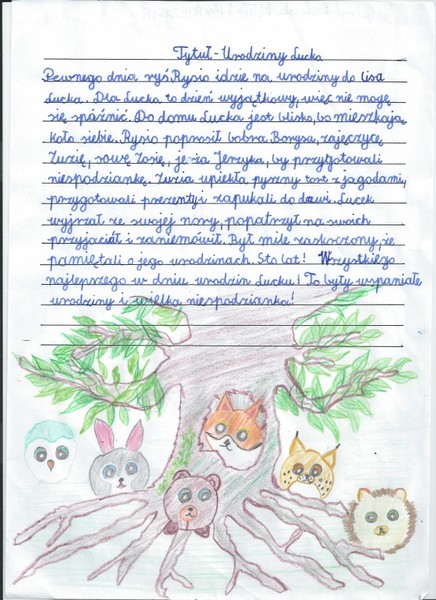 Tytuł - Urodziny Lucka
Pewnego dnia ryś Rysio idzie na urodziny do lisa
Lucka. Dla Lucka to dzień wyjątkowy, więc nie mogę
się spóźnić. Do domu Lucka jest blisko, bo mieszkają
koło siebie. Rysio poprosił bobra Borysa, zajęczycę
Zuzię, sowę Zosię, jeża Jerzyka, by przygotowali
niespodziankę. Zuzia upiekła pyszny tort z jagodami,
przygotowali prezenty i zapukali do drzwi. Lucek
wyjrzał ze swojej nory, popatrzył na swoich
przyjaciół i zaniemówił. Był mile zaskoczony, że
pamiętali o jego urodzinach. Sto lat! Wszystkiego
najlepszego w dniu urodzin Lucku! To były wspaniałe
urodziny i wielka niespodzianka!